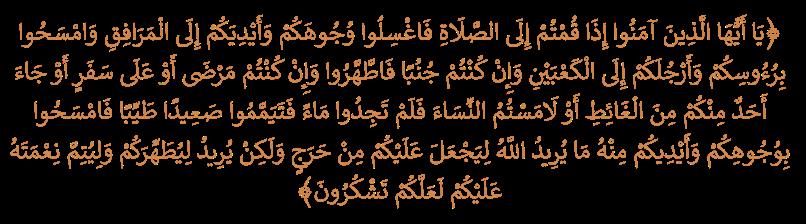 ﴿يَا أَيُّهَا الَّذِينَ آمَنُوا إِذَا قُمْتُمْ إِلَى الصَّلَاةِ فَاغْسِلُوا وُجُوهَكُمْ وَأَيْدِيَكُمْ إِلَى الْمَرَافِقِ وَامْسَحُوا
بِرُءُوسِكُمْ وَأَرْجُلَكُمْ إِلَى الْكَعْبَيْنِ وَإِنْ كُنْتُمْ جُنُبًا فَاطَّهَّرُوا وَإِنْ كُنْتُمْ مَرْضَى أَوْ عَلَى سَفَرٍ أَوْ جَاءَ
أَحَدٌ مِنْكُمْ مِنَ الْغَائِطِ أَوْ لَامَسْتُمُ النِّسَاءَ فَلَمْ تَجِدُوا مَاءً فَتَيَمَّمُوا صَعِيدًا طَيِّبًا فَامْسَحُوا
بِوُجُوهِكُمْ وَأَيْدِيكُمْ مِنْهُ مَا يُرِيدُ اللَّهُ لِيَجْعَلَ عَلَيْكُمْ مِنْ حَرَجٍ وَلَكِنْ يُرِيدُ لِيُطَهِّرَكُمْ وَلِيُتِمَّ نِعْمَتَهُ
عَلَيْكُمْ لَعَلَّكُمْ تَشْكُرُونَ﴾